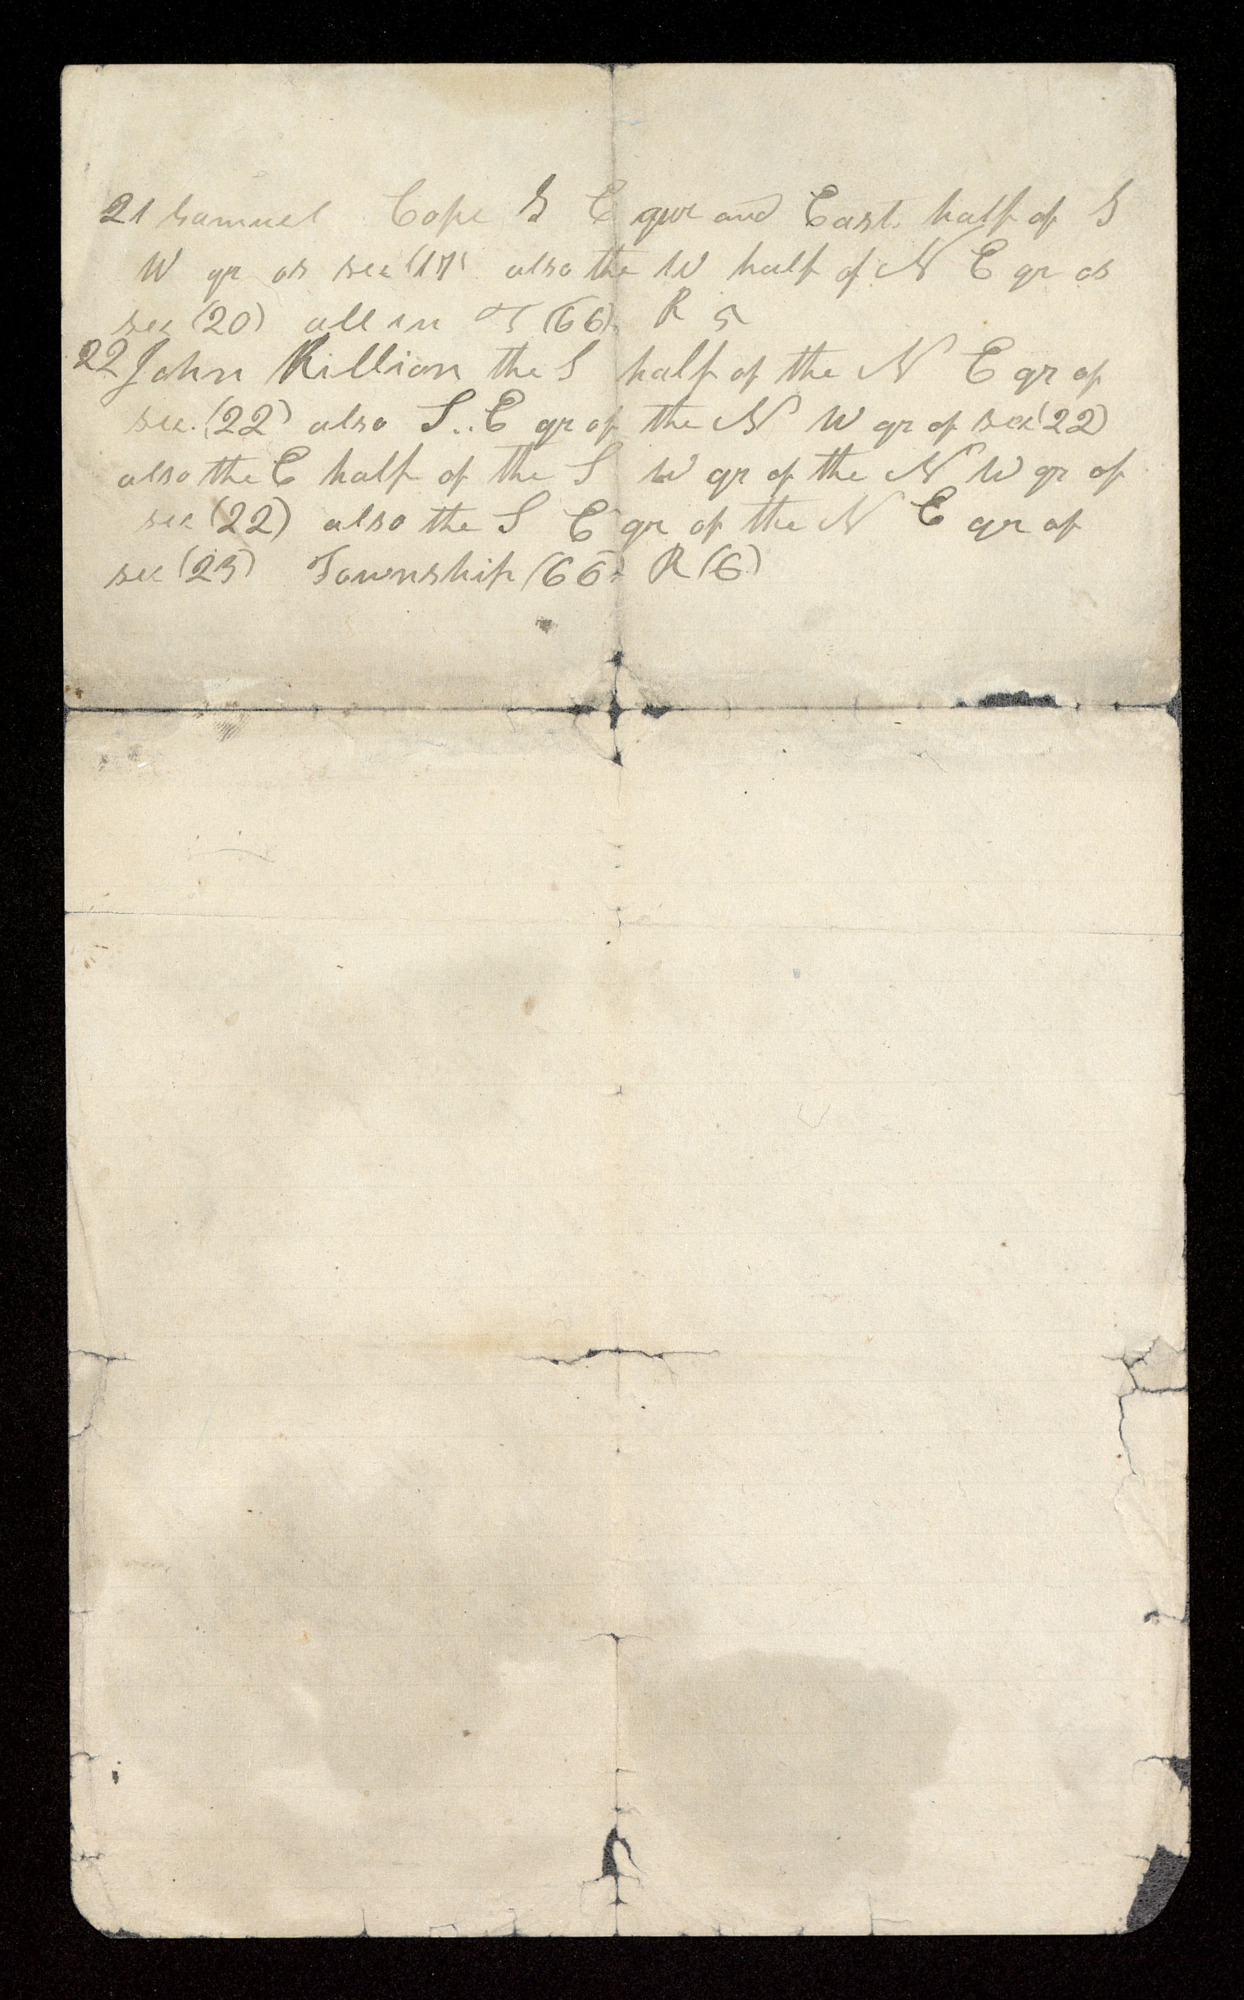 21 Samuel Cope S E qur and East half of S
W qr of sec (17) also the W half of N E qr of
sec (20) all in T (66) R 5
22 John Killion the S half of the N E qr of
sec. (22) also S..E qr of the N W qr of sec (22)
also the E half of the S W qr of the N W qr of
sec (22) also the S E qr of the N E qr of
sec (25) Township (66) R (6)